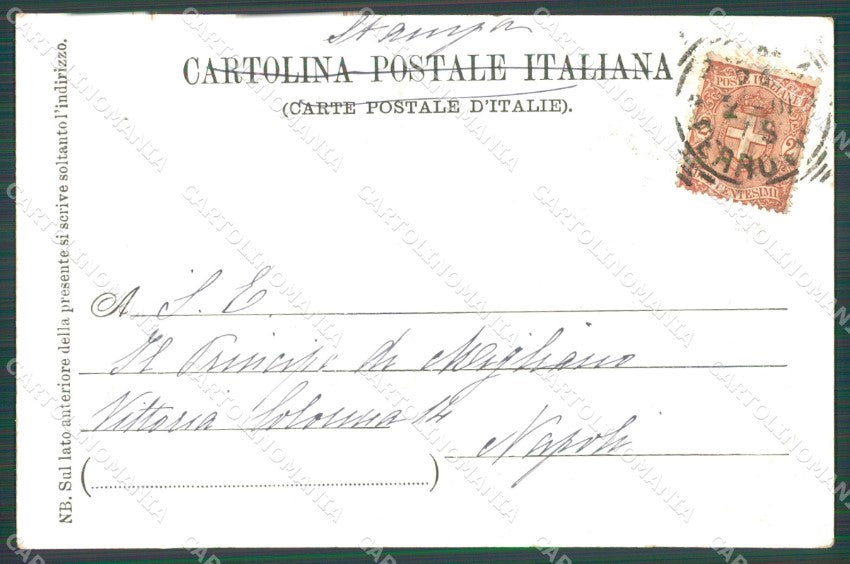 Stampa
CARTOLINA POSTALE ITALIANA
(CARTE POSTALE D'ITALIE).
POSTE ITALIANE
2
CENTESIMI
A S. E.
Il Principe di Migliano
Vittoria Colonna 14
Napoli
NB. Sul lato anteriore della presente si scrive soltanto l'indirizzo.
CARTOLINOMANIA